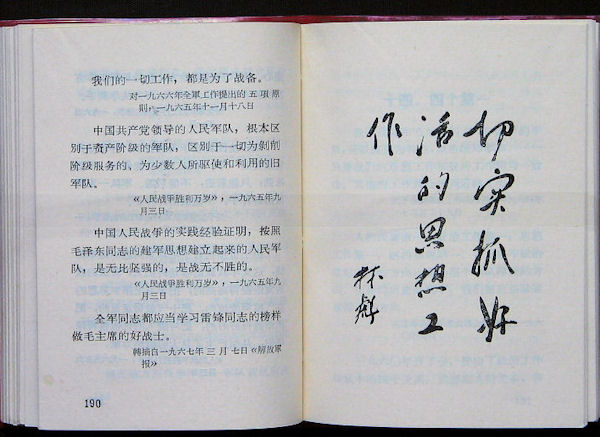 我们的一切工作，都是为了战备。
对一九六六年全軍工作提出的五項原
則，一九六五年十一月十八日
中国共产党领导的人民军队，根本区
别于资产阶级的军队，区别于一切为剥削
阶级服务的、为少数人所驱使和利用的旧
军队。
《人民战争胜利万岁》，一九六五年九
月三日
中国人民战争的实践经验证明，按照
毛泽东同志的建军思想建立起来的人民军
队，是无比坚强的，是战无不胜的。
《人民战争胜利万岁》，一九六五年九
月三日
全军同志都应当学习雷锋同志的榜样
做毛主席的好战士。
轉摘自一九六七年三月七日《解放軍
报》
190
切实抓好
活的思想工
作
林彪